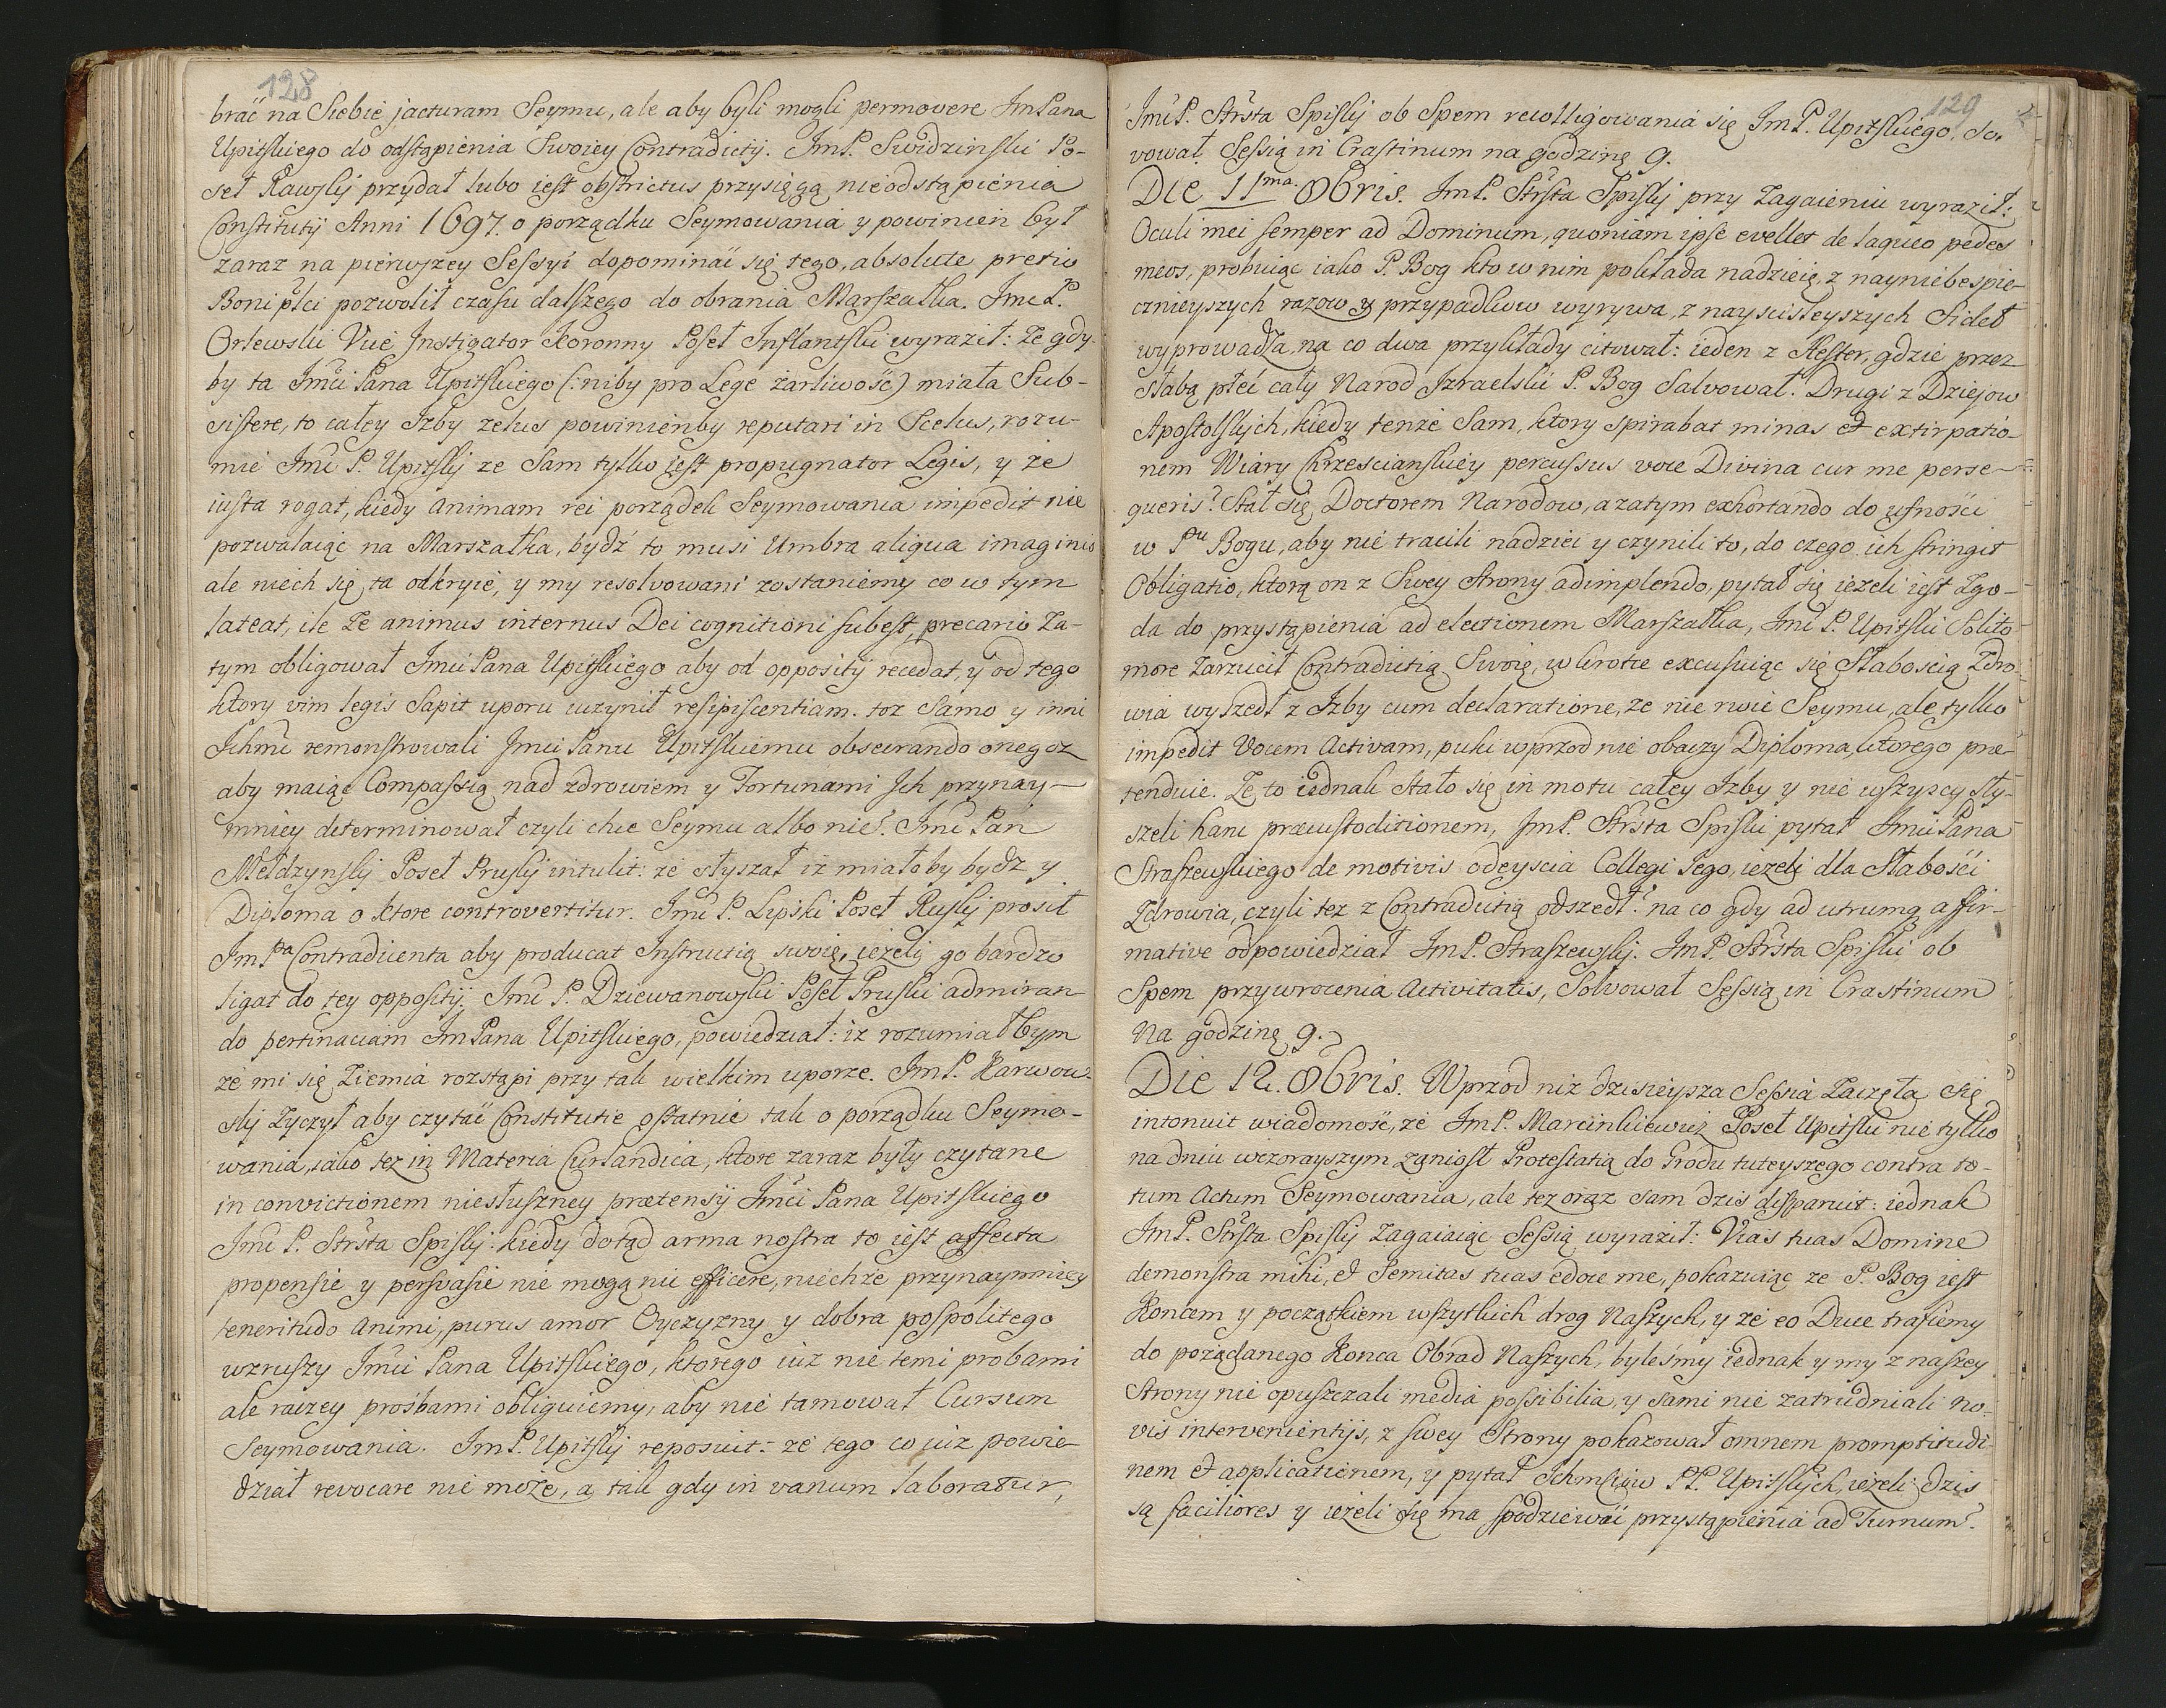 128
brać na Siebie jacturam Seymu, ale aby byli mogli permovere ImPana
Upitskiego do odstąpienia Swoiey Contradictij. ImP. Swidzinski Po-
seł Rawskij przydał lubo iest obstrictus przysięgą nieodstąpienia
Constitutij Anni 1697. o porządku Seymowania y powinien był
zaraz na pierwszey Sessyi dopominać się tego, absolute pretio
Boni płci pozwolił czasu dalszego do obrania Marszałka. Imć P.
Orłewski Vice Instigator Koronny Poseł Inflantski wyraził: Ze gdy-
by ta Imći Pana Upitskiego (: niby pro Lege żarliwość) miała Sub-
sistere, to całey Izby zelus powinienby reputari in Scelus, rozu-
mie Imć P. Upitskij ze Sam tylko iest propugnator Legis, y że
iusta rogat, kiedy animam rei porządek Seymowania impedit nie
pozwalaiąc na Marszałka, bydź to musi Umbra aliqua imaginis
ale niech się ta odkryie, y my resolvowani zostaniemy co w tym
lateat, ile Ze animus internus Dei cognitioni subest, precario Za-
tym obligował Imći Pana Upitskiego aby od oppositij recedat, y od tego
ktory vim legis Sapit uporu uczynił resipiscentiam. toz Samo y inni
Ichmć remonstrowali Imći Panu Upitskiemu obsecrando onegoz
aby maiąc Compassią nad zdrowiem y Fortunami Ich przynay-
mniey determinował czyli chce Seymu albo nie? Imć Pan
Mełdzynskij Poseł Pruskij intulit: że słyszał iż miałoby bydź y
Diploma o ktore controvertitur. Imć P. Lipski Poseł Ruskij prosił
ImPa Contradicenta aby producat Instructią swoię, ieżeli go bardzo
ligat do tey oppositij. Imć P. Dziewanowski Poseł Pruski admiran-
do pertinaciam ImPana Upitskiego, powiedział: iż rozumiałbym
że mi się Ziemia rozstąpi przy tak wielkim uporze. ImP. Karwow-
skij Zyczył aby czytać Constitutie ostatnie tak o porządku Seymo-
wania, iako też in Materia Curlandica, ktore zaraz były czytane
in convictionem niesłuszney prætensij Imći Pana Upitskiego
Imć P. Strsta Spiskij: kiedy dotąd arma nostra to iest affecta
propensie y persvasie nie mogą nic efficere, niechże przynaymniey
teneritudo animi, purus amor Oyczyzny y dobra pospolitego
wzruszy Imći Pana Upitskiego, ktorego iuż nie temi probami
ale raczey prośbami obliguiemy, aby nie tamował Cursum
Seymowania. ImP. Upitskij reposuit: że tego co iuż powie-
dział revocare nie może, a tak gdy in vanum laboratur,
129
ImćP. Strsta Spiskij ob Spem recolligowania się ImP. Upitskiego. Sol-
vował Sessią in Crastinum na godzinę 9.
Die 11ma. 8bris. ImP. Strsta Spiskij przy Zagaieniu wyraził:
Oculi mei semper ad Dominum, quoniam ipse evellet de laqueo pedes
meos, probuiąc iako P. Bog kto w nim pokłada nadzieię, z nayniebespie-
cznieyszych razow y przypadkow wyrywa, z nayscisłeyszych Sideł
wyprowadza, na co dwa przykłady citował: ieden z Hester, gdzie przez
słabą płeć cały Narod Izraelski P. Bog Salvował. Drugi z Dziejow
Apostolskich, kiedy tenże Sam, ktory spirabat minas et extirpatio-
nem Wiary Chrzescianskiey percussus voce Divina cur me perse-
queris? Stał się Doctorem Narodow, a zatym exhortando do ufności
w Pnu Bogu, aby nie tracili nadziei y czynili to, do czego ich stringit
Obligatio, ktorą on z Swey Strony adimplendo, pytał się ieżeli iest Zgo-
da do przystąpienia ad electionem Marszałka, Imć P. Upitski Solito
more Zarzucił Contradictią Swoię, wkrotce excusuiąc się Słabością Zdro-
wia wyszedł z Izby cum declaratione, że nie rwie Seymu, ale tylko
impedit Vocem Activam, puki wprzod nie obaczy Diploma, ktorego præ-
tenduie. Ze to iednak stało się in motu całey Izby y nie wszyscy sły-
szeli hanc præcustoditionem, ImP. Strsta Spiski pytał Imći Pana
Straszewskiego de motivis odeyscia Collegi Jego, ieżeli dla Słabości
Zdrowia, czyli też z Contradictią odszedł? na co gdy ad utrumq affir-
mative odpowiedział ImP. Straszewskij. ImP. Strsta Spiski ob
Spem przywrocenia Activitatis, Solvował Sessią in Crastinum
na godzinę 9.
Die 12. 8bris. Wprzod niż dzisieysza Sessia Zaczęła się
intonuit wiadomość, że ImP. Marcinkiewicz Poseł Upitski nie tylko
na dniu wczorayszym zaniosł Protestatią do Grodu tuteyszego contra to-
tum Actum Seymowania, ale też oraz sam dzis disparuit: iednak
ImP. Strsta Spiskij Zagaiaiąc Sessią wyraził: Vias tuas Domine
demonstra mihi, et Semitas tuas edoce me, pokazuiąc ze P. Bog iest
Koncem y początkiem wszytkich drog Naszych, y że eo Duce trafiemy
do pożądanego Konca Obrad Naszych, byleśmy iednak y my z naszey
Strony nie opuszczali media possibilia, y sami nie zatrudniali no-
vis intervenientijs, z swey Strony pokazował omnem promptitudi-
nem et applicationem, y pytał Ichmściow PP. Upitskich, ieżeli dzis
są faciliores y ieżeli się ma spodziewać przystąpienia ad Turnum?